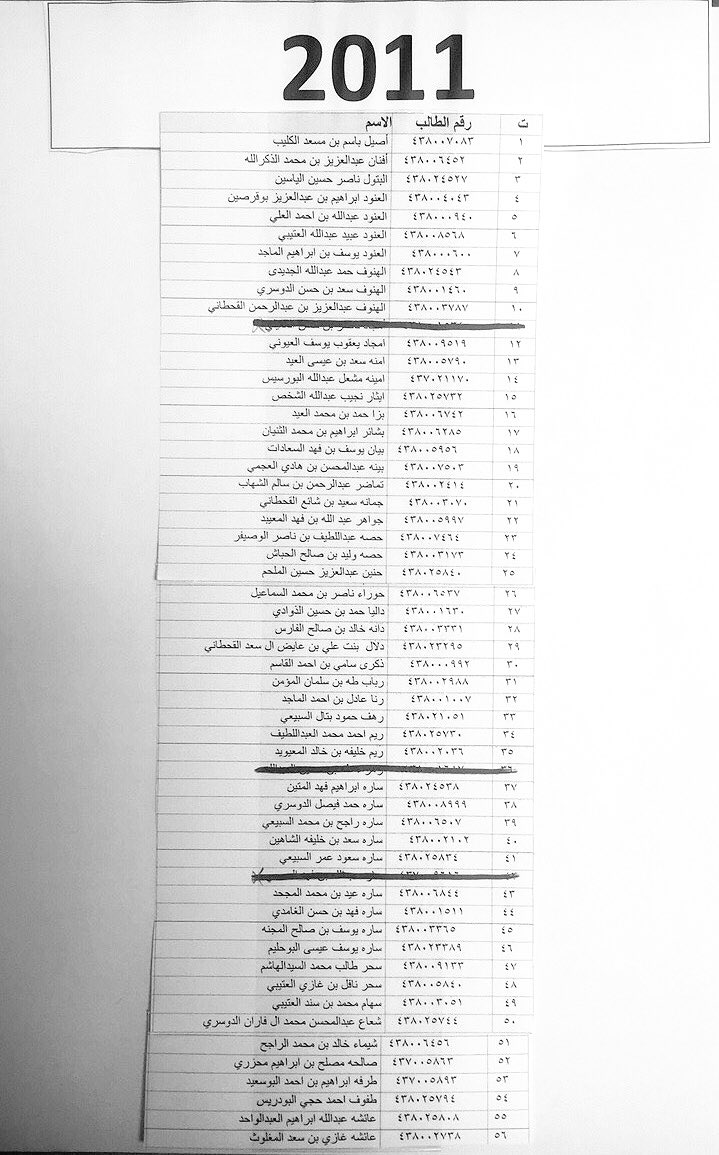 2011
ت رقم الطالب الاسم
١ ٤٣٨٠٠٧٠٨٣ أصيل باسم بن مسعد الكليب
٢ ٤٣٨٠٠٦٤٥٢ أفنان عبدالعزيز بن محمد الذكرالله
٣ ٤٣٨٠٢٤٥٢٧ البتول ناصر حسين الياسين
٤ ٤٣٨٠٠٤٠٤٣ العنود ابراهيم بن عبدالعزيز بوقرصين
٥ ٤٣٨٠٠٠٩٤٠ العنود عبدالله بن احمد العلي
٦ ٤٣٨٠٠٨٥٦٨ العنود عبيد عبدالله العتيبي
٧ ٤٣٨٠٠٠٦٠٠ العنود يوسف بن ابراهيم الماجد
٨ ٤٣٨٠٢٤٥٤٣ الهنوف حمد عبدالله الجديدى
٩ ٤٣٨٠٠١٤٦٠ الهنوف سعد بن حسن الدوسري
١٠ ٤٣٨٠٠٣٧٨٧ الهنوف عبدالعزيز بن عبدالرحمن القحطاني
١٢ ٤٣٨٠٠٩٥١٩ امجاد يعقوب يوسف العيوني
١٣ ٤٣٨٠٠٥٧٩٠ امنه سعد بن عيسى العيد
١٤ ٤٣٧٠٢١١٧٠ امينه مشعل عبدالله البورسيس
١٥ ٤٣٨٠٢٥٧٣٢ ايثار نجيب عبدالله الشخص
١٦ ٤٣٨٠٠٦٧٤٢ بزا حمد بن محمد العيد
١٧ ٤٣٨٠٠٦٢٨٥ بشائر ابراهيم بن محمد الثنيان
١٨ ٤٣٨٠٠٥٩٥٦ بيان يوسف بن فهد السعادات
١٩ ٤٣٨٠٠٧٥٠٣ بينه عبدالمحسن بن هادي العجمي
٢٠ ٤٣٨٠٠٢٤١٤ تماضر عبدالرحمن بن سالم الشهاب
٢١ ٤٣٨٠٠٣٠٧٠ جمانه سعيد بن شائع القحطاني
٢٢ ٤٣٨٠٠٥٩٩٧ جواهر عبد الله بن فهد المعيبد
٢٣ ٤٣٨٠٠٧٤٦٤ حصه عبداللطيف بن ناصر الوصيفر
٢٤ ٤٣٨٠٠٣١٧٣ حصه وليد بن صالح الحباش
٢٥ ٤٣٨٠٢٥٨٤٠ حنين عبدالعزيز حسين الملحم
٢٦ ٤٣٨٠٠٦٥٣٧ حوراء ناصر بن محمد السماعيل
٢٧ ٤٣٨٠٠١٦٣٠ داليا حمد بن حسين الذوادي
٢٨ ٤٣٨٠٠٣٣٣١ دانه خالد بن صالح الفارس
٢٩ ٤٣٨٠٢٣٢٩٥ دلال بنت علي بن عايض ال سعد القحطاني
٣٠ ٤٣٨٠٠٠٩٩٢ ذكرى سامي بن احمد القاسم
٣١ ٤٣٨٠٠٢٩٨٨ رباب طه بن سلمان المؤمن
٣٢ ٤٣٨٠٠١٠٠٧ رنا عادل بن احمد الماجد
٣٣ ٤٣٨٠٢١٠٥١ رهف حمود بتال السبيعي
٣٤ ٤٣٨٠٢٥٧٣٠ ريم احمد محمد العبداللطيف
٣٥ ٤٣٨٠٠٢٠٣٦ ريم خليفه بن خالد المعيويد
٣٧ ٤٣٨٠٢٤٥٣٨ ساره ابراهيم فهد المتين
٣٨ ٤٣٨٠٠٨٩٩٩ ساره حمد فيصل الدوسري
٣٩ ٤٣٨٠٠٦٥٠٧ ساره راجح بن محمد السبيعي
٤٠ ٤٣٨٠٠٢١٠٢ ساره سعد بن خليفه الشاهين
٤١ ٤٣٨٠٢٥٨٣٤ ساره سعود عمر السبيعي
٤٣ ٤٣٨٠٠٦٨٤٤ ساره عيد بن محمد المجحد
٤٤ ٤٣٨٠٠١٥١١ ساره فهد بن حسن الغامدي
٤٥ ٤٣٨٠٠٣٣٦٥ ساره يوسف بن صالح المجنه
٤٦ ٤٣٨٠٢٣٣٨٩ ساره يوسف عيسى البوحليم
٤٧ ٤٣٨٠٠٩١٣٣ سحر طالب محمد السيدالهاشم
٤٨ ٤٣٨٠٠٥٨٤٠ سحر نافل بن غازي العتيبي
٤٩ ٤٣٨٠٠٣٠٥١ سهام محمد بن سند العتيبي
٥٠ ٤٣٨٠٢٥٧٤٤ شعاع عبدالمحسن محمد ال فاران الدوسري
٥١ ٤٣٨٠٠٦٤٥٦ شيماء خالد بن محمد الراجح
٥٢ ٤٣٧٠٠٥٨٦٣ صالحه مصلح بن ابراهيم محزري
٥٣ ٤٣٧٠٠٥٨٩٣ طرفه ابراهيم بن احمد البوسعيد
٥٤ ٤٣٨٠٢٥٧٩٤ طفوف احمد حجي البودريس
٥٥ ٤٣٨٠٢٥٨٠٨ عائشه عبدالله ابراهيم العبدالواحد
٥٦ ٤٣٨٠٠٢٧٣٨ عائشه غازي بن سعد المغلوث